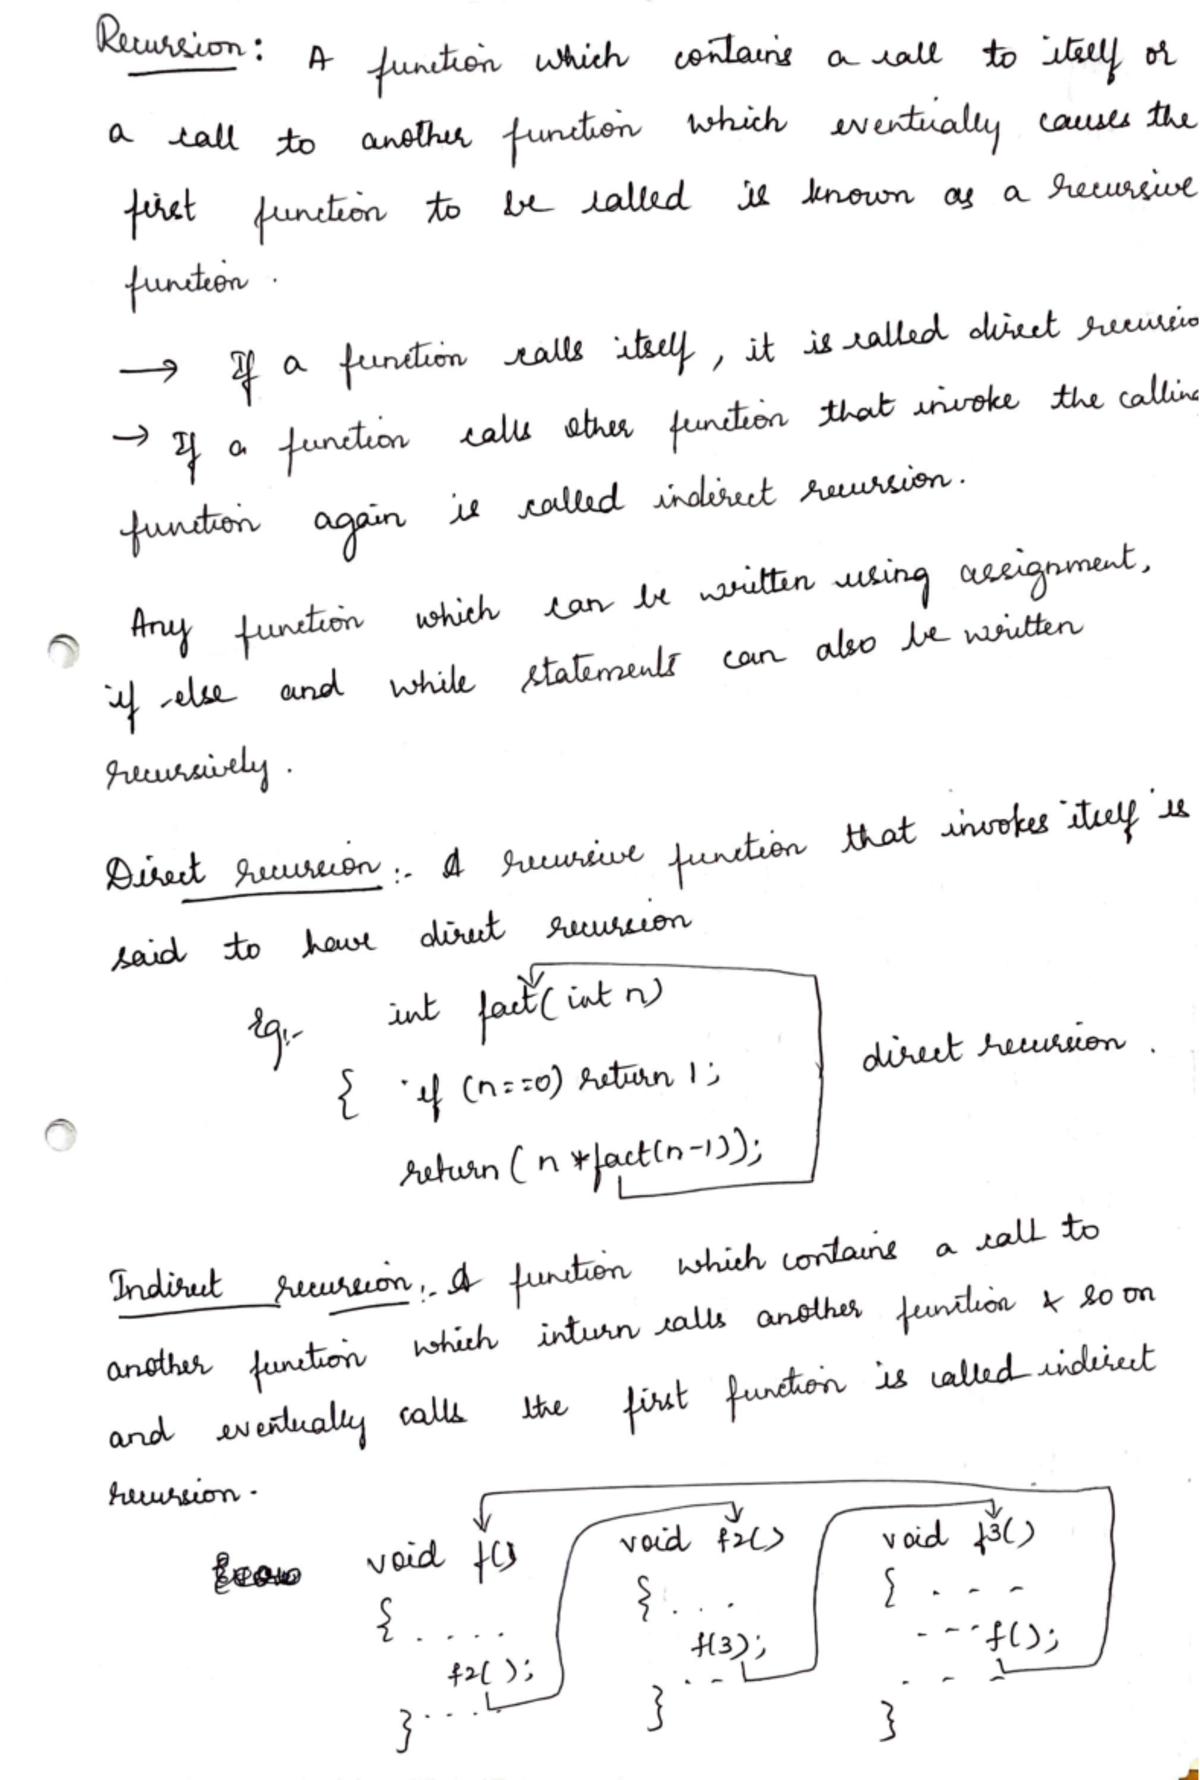 Recursion: A function which contains a call to itself or
a call to another function which eventually causes the
first function to be called is known as a recursive
function.
→ If a function calls itself, it is called direct recursio
→ If a function calls other function that invoke the calling
function again is called indirect recursion.
Any function which can be written using assignment,
if-else and while statements can also be written
recursively.
Direct recursion:- A recursive function that invokes itself is
said to have direct recursion
Eg:- int fact(int n)
{ if (n==0) return 1;
direct recursion.
return(n*fact(n-1));
Indirect recursion:- A function which contains a call to
another function which inturn calls another function & so on
and eventually calls the first function is called indirect
recursion.
void f() void f2() void f3()
{ .... { ... { . - - -
f2(); f(3); ---f();
}..... } -- - - -
}